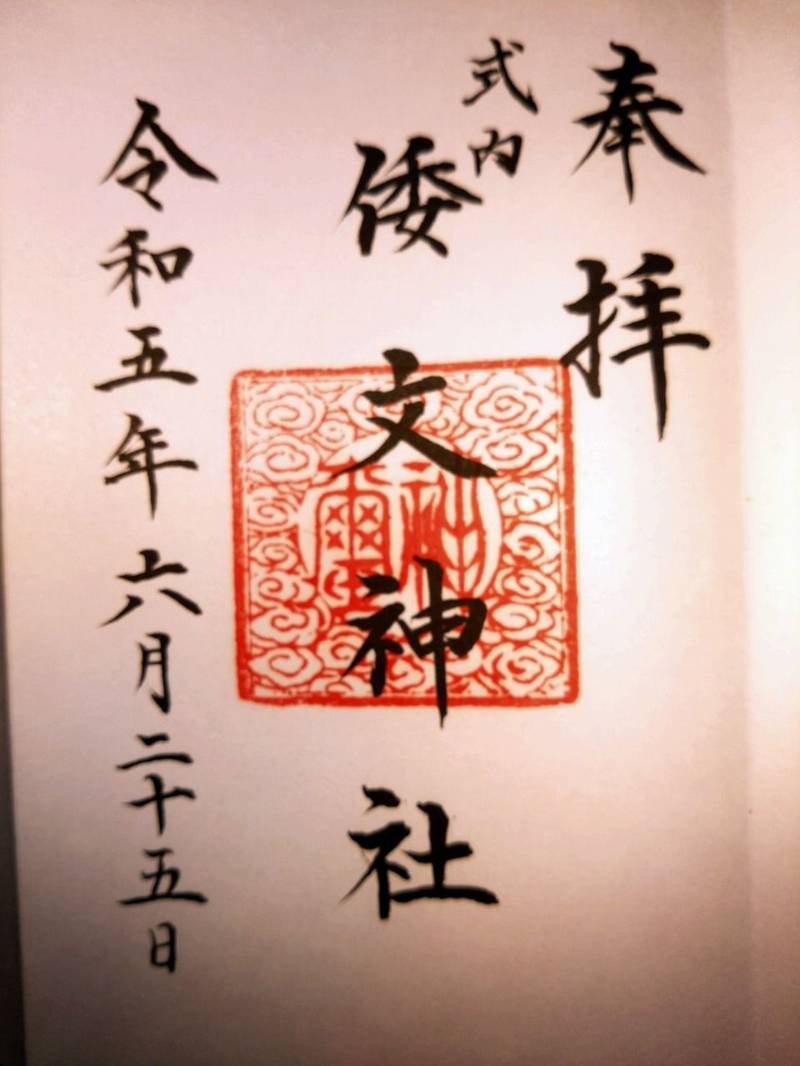 奉拝
式内
倭文神社
令和五年六月二十五日